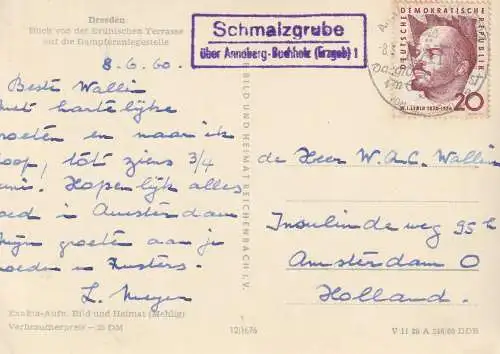 Dresden
Blick von der Brühlschen Terrasse
auf die Dampferanlegestelle
8.6.60.
Beste Wallin
Met hartelijke
groeten en naar ik
hoop, tot ziens 3/4
uni. Hopenlijk alles
oed in Amsterdam
Mijn groeten aan je
oeder en Zusters.
L. Meyer
Exakta-Aufn. Bild und Heimat (Mehlig)
Verbraucherpreis –.25 DM
BILD UND HEIMAT REICHENBACH I. V.
12/1676
Schmalzgrube
über Annaberg-Buchholz (Erzgeb) 1
DEUTSCHE DEMOKRATISCHE REPUBLIK
W.I. LENIN 1870-1924
20
de Heer W.A.C. Wallin
Insulinde weg 95 h
Amsterdam O
Holland.
V 11 28 A 246/60 DDR